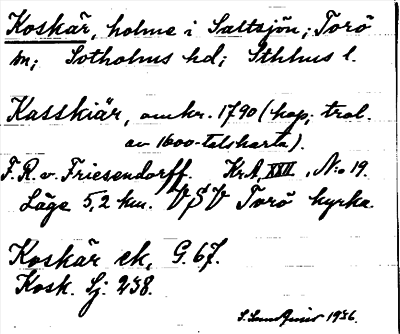 Koskär, holme i Saltsjön; Torö
sn; Sotholms hd; Sthlms l.
Kasskiär, omkr. 1790 (kop; trol.
av 1600-talskarta).
F. R. v. Friesendorff. KrA XXII, No 19.
Läge 5,2 km. VSV Torö kyrka.
Koskär ek, G. 67.
Kosk. Sj. 238.
1936.